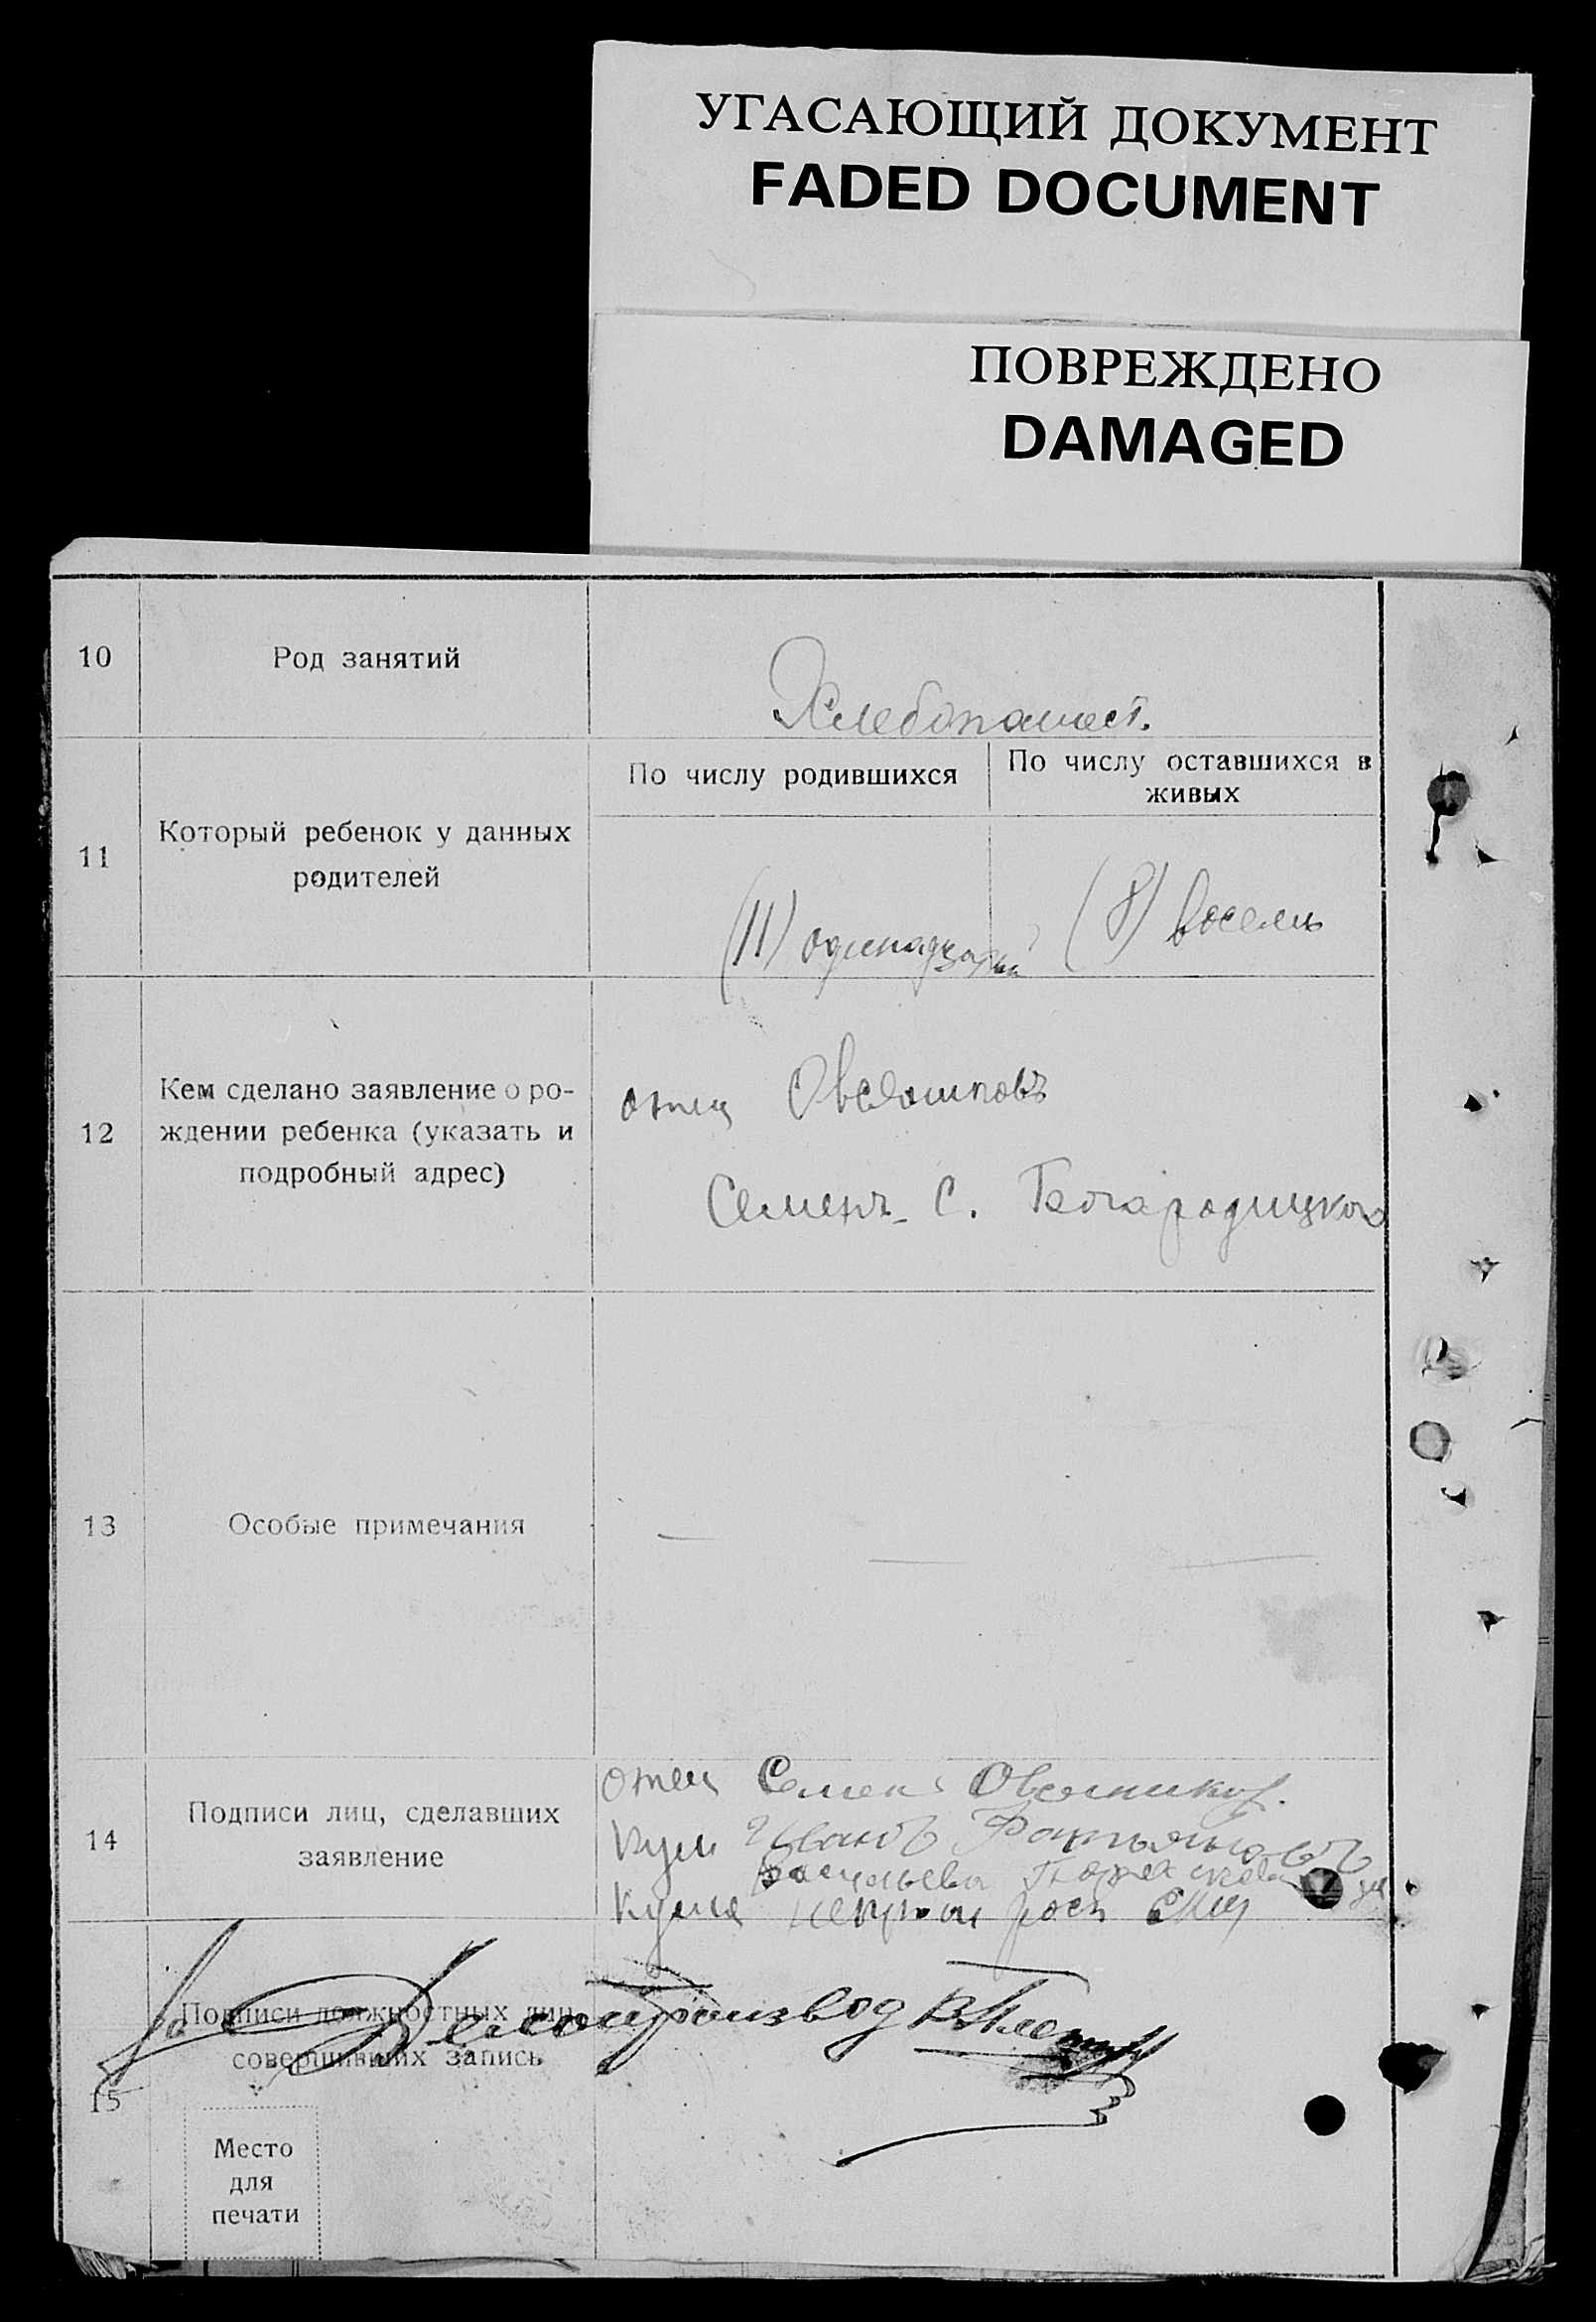 УГАСАЮЩИЙ ДОКУМЕНТ
FADED DOCUMENT
ПОВРЕЖДЕНО
DAMAGED
10
Род занятий
Хлебопашест.
11
Который ребенок у данных
родителей
По числу родившихся
По числу оставшихся в
живых
(11) одинадцатый
(8) восемь
12
Кем сделано заявление о ро-
ждении ребенка (указать и
подробный адрес)
отец
Семенъ С.
13
Особые примечания
14
Подписи лиц, сделавших
заявление
отец Семен Овсяников.
Кум Иванъ
Васильева
Кума
15
Подписи должностных лиц,
совершивших запись
Делопроизвод
Место
для
печати